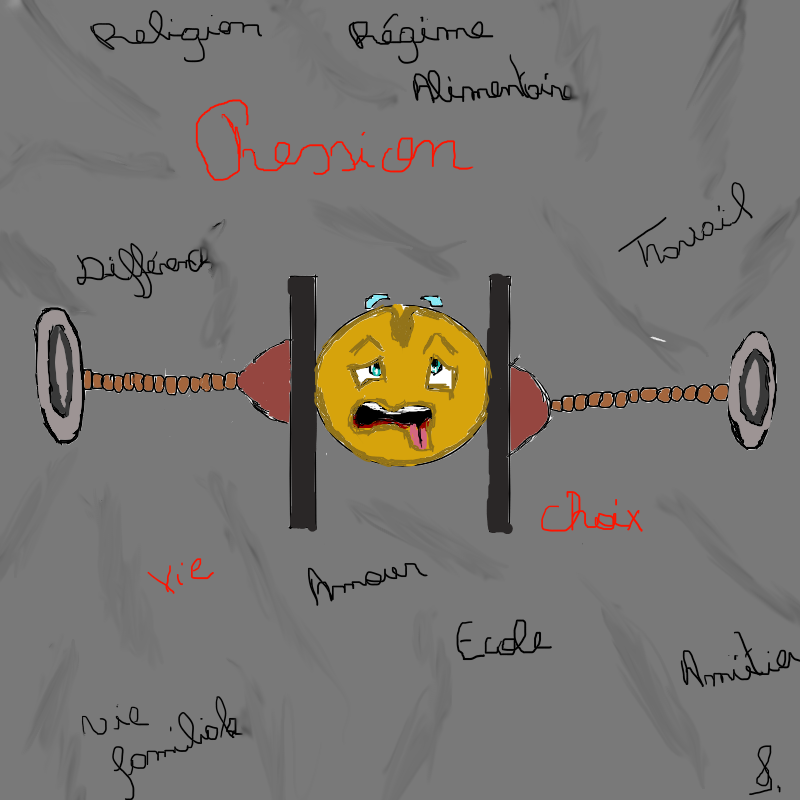 Religion
Régime
Alimentaire
Pression
Travail
Différence
Choix
Vie
Amour
Ecole
Amitié
Vie
familiale